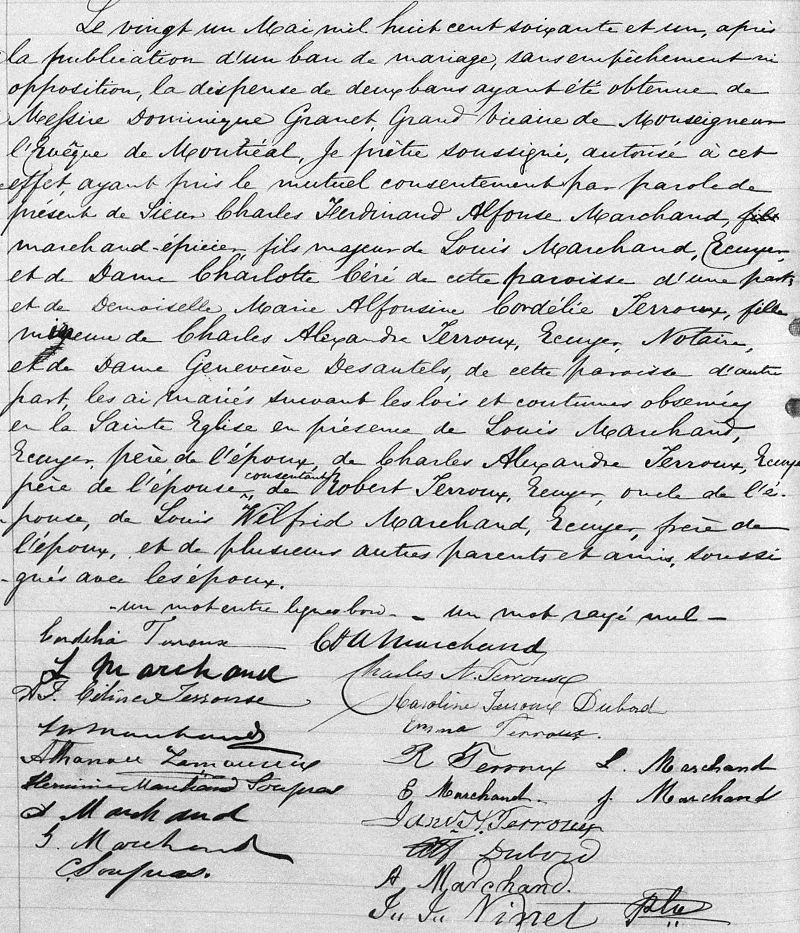 Le vingt un Mai mil huit cent soixante et un, après
la publication d'un ban de mariage, sans empêchement ni
opposition, la dispense de deux bans ayant été obtenue de
Messire Dominique Granet, Grand Vicaire de Monseigneur
l'Evêque de Montréal, Je prêtre soussigné, autorisé à cet
effet, ayant pris le mutuel consentement par parole de
présent de Sieur Charles Ferdinand Alfonse Marchand, fils
marchand-épicier, fils majeur de Louis Marchand, Ecuyer,
et de Dame Charlotte Céré de cette paroisse d'une part,
et de Demoiselle Marie Alfonsine Cordélie Terroux, fille
mineure de Charles Alexandre Terroux, Ecuyer, Notaire,
et de Dame Geneviève Desautels, de cette paroisse d'autre
part, les ai mariés suivant les lois et coutumes observées
en la Sainte Eglise en présence de Louis Marchand,
Ecuyer, père de l'époux, de Charles Alexandre Terroux, Ecuyer
père de l'épouse consentant, de Robert Terroux, Ecuyer, oncle de l'é-
pouse, de Louis Wilfrid Marchand, Ecuyer, frère de
l'époux, et de plusieurs autres parents et amis, soussi
-gnés avec les époux.
- un mot entre lignes bon - - un mot rayé nul -
Cordelia Terroux CFA Marchand
L Marchand Charles A. Terroux
Caroline Terroux Dubord
LW Marchand Emma Terroux.
R Terroux L. Marchand
Herminie Marchand Soupras E Marchand. J. Marchand
A Marchand Terroux
G. Marchand Dubord
C. Soupras. A Marchand.
Ninet Ptre